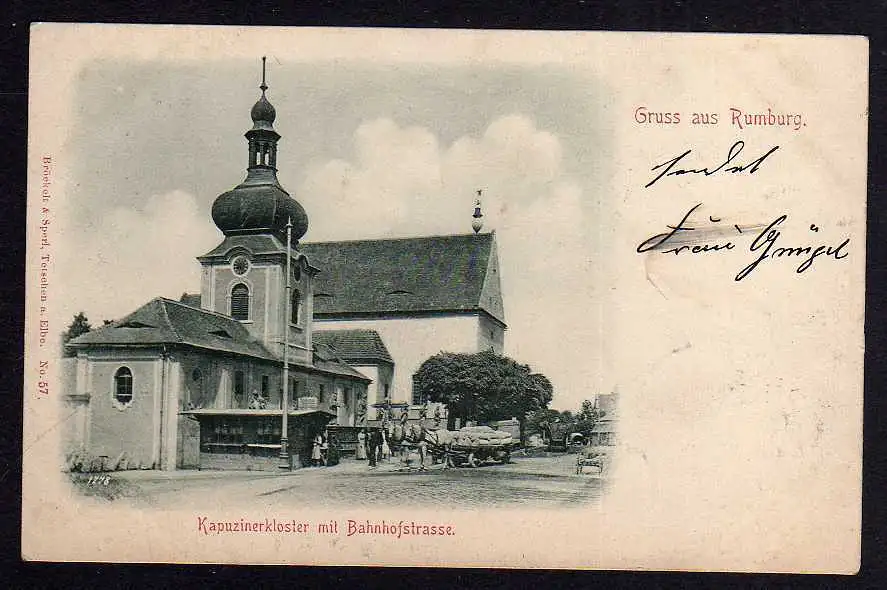 Gruss aus Rumburg.
sendet
Frau Güngel
Kapuzinerkloster mit Bahnhofstrasse.
Brückolt & Sperl, Tetschen a. Elbe. No. 57.
1278